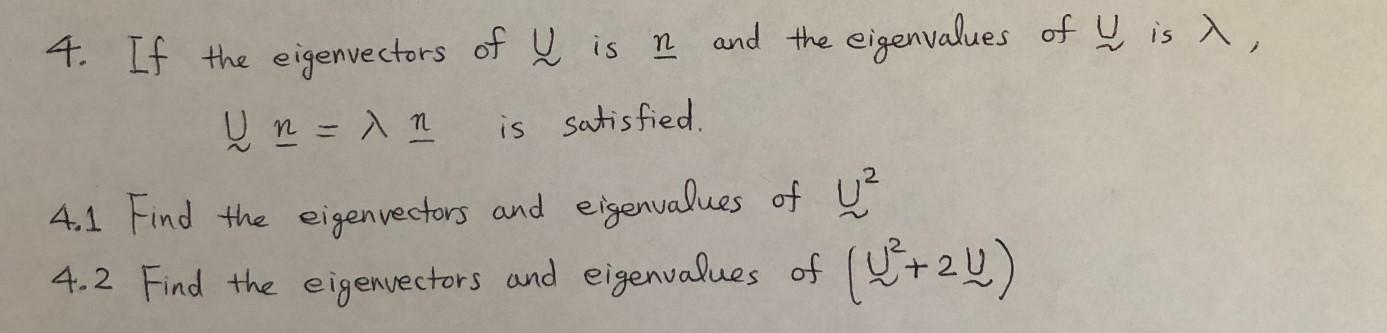 4. If the eigenvectors of Ṵ is n̲ and the eigenvalues of Ṵ is λ,
Ṵ n̲ = λ n̲ is satisfied.
4.1 Find the eigenvectors and eigenvalues of Ṵ²
4.2 Find the eigenvectors and eigenvalues of (Ṵ²+2Ṵ)